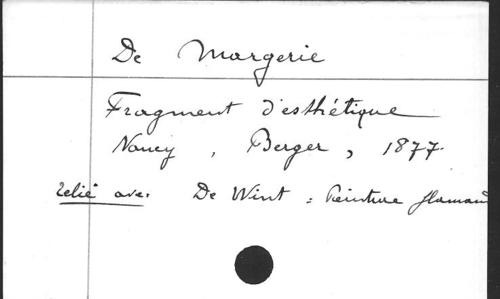 De Margerie
Fragment d'esthétique
Nancy, Berger, 1877.
relié avec De Wint : Peinture flaman